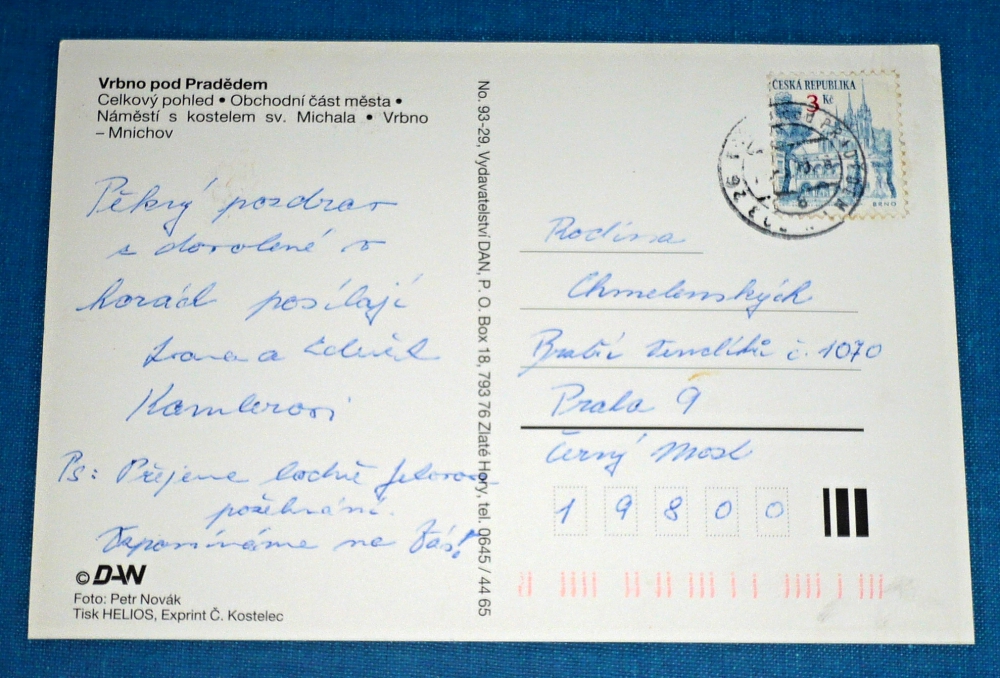 Vrbno pod Pradědem
Celkový pohled • Obchodní část města •
Náměstí s kostelem sv. Michala • Vrbno
– Mnichov
Pěkný pozdrav
z dovolené v
horách posílají
a
Kamlerovi
Ps: Přejeme hodně
požehnání.
Vzpomínáme na Vás!
© DAN
Foto: Petr Novák
Tisk HELIOS, Exprint Č. Kostelec
No. 93-29, Vydavatelství DAN, P. O. Box 18, 793 76 Zlaté Hory, tel. 0645 / 44 65
ČESKÁ REPUBLIKA
3 Kč
BRNO
793 26
Rodina
Chmelenských
Bratří Venclíků č. 1070
Praha 9
Černý Most
1 9 8 0 0